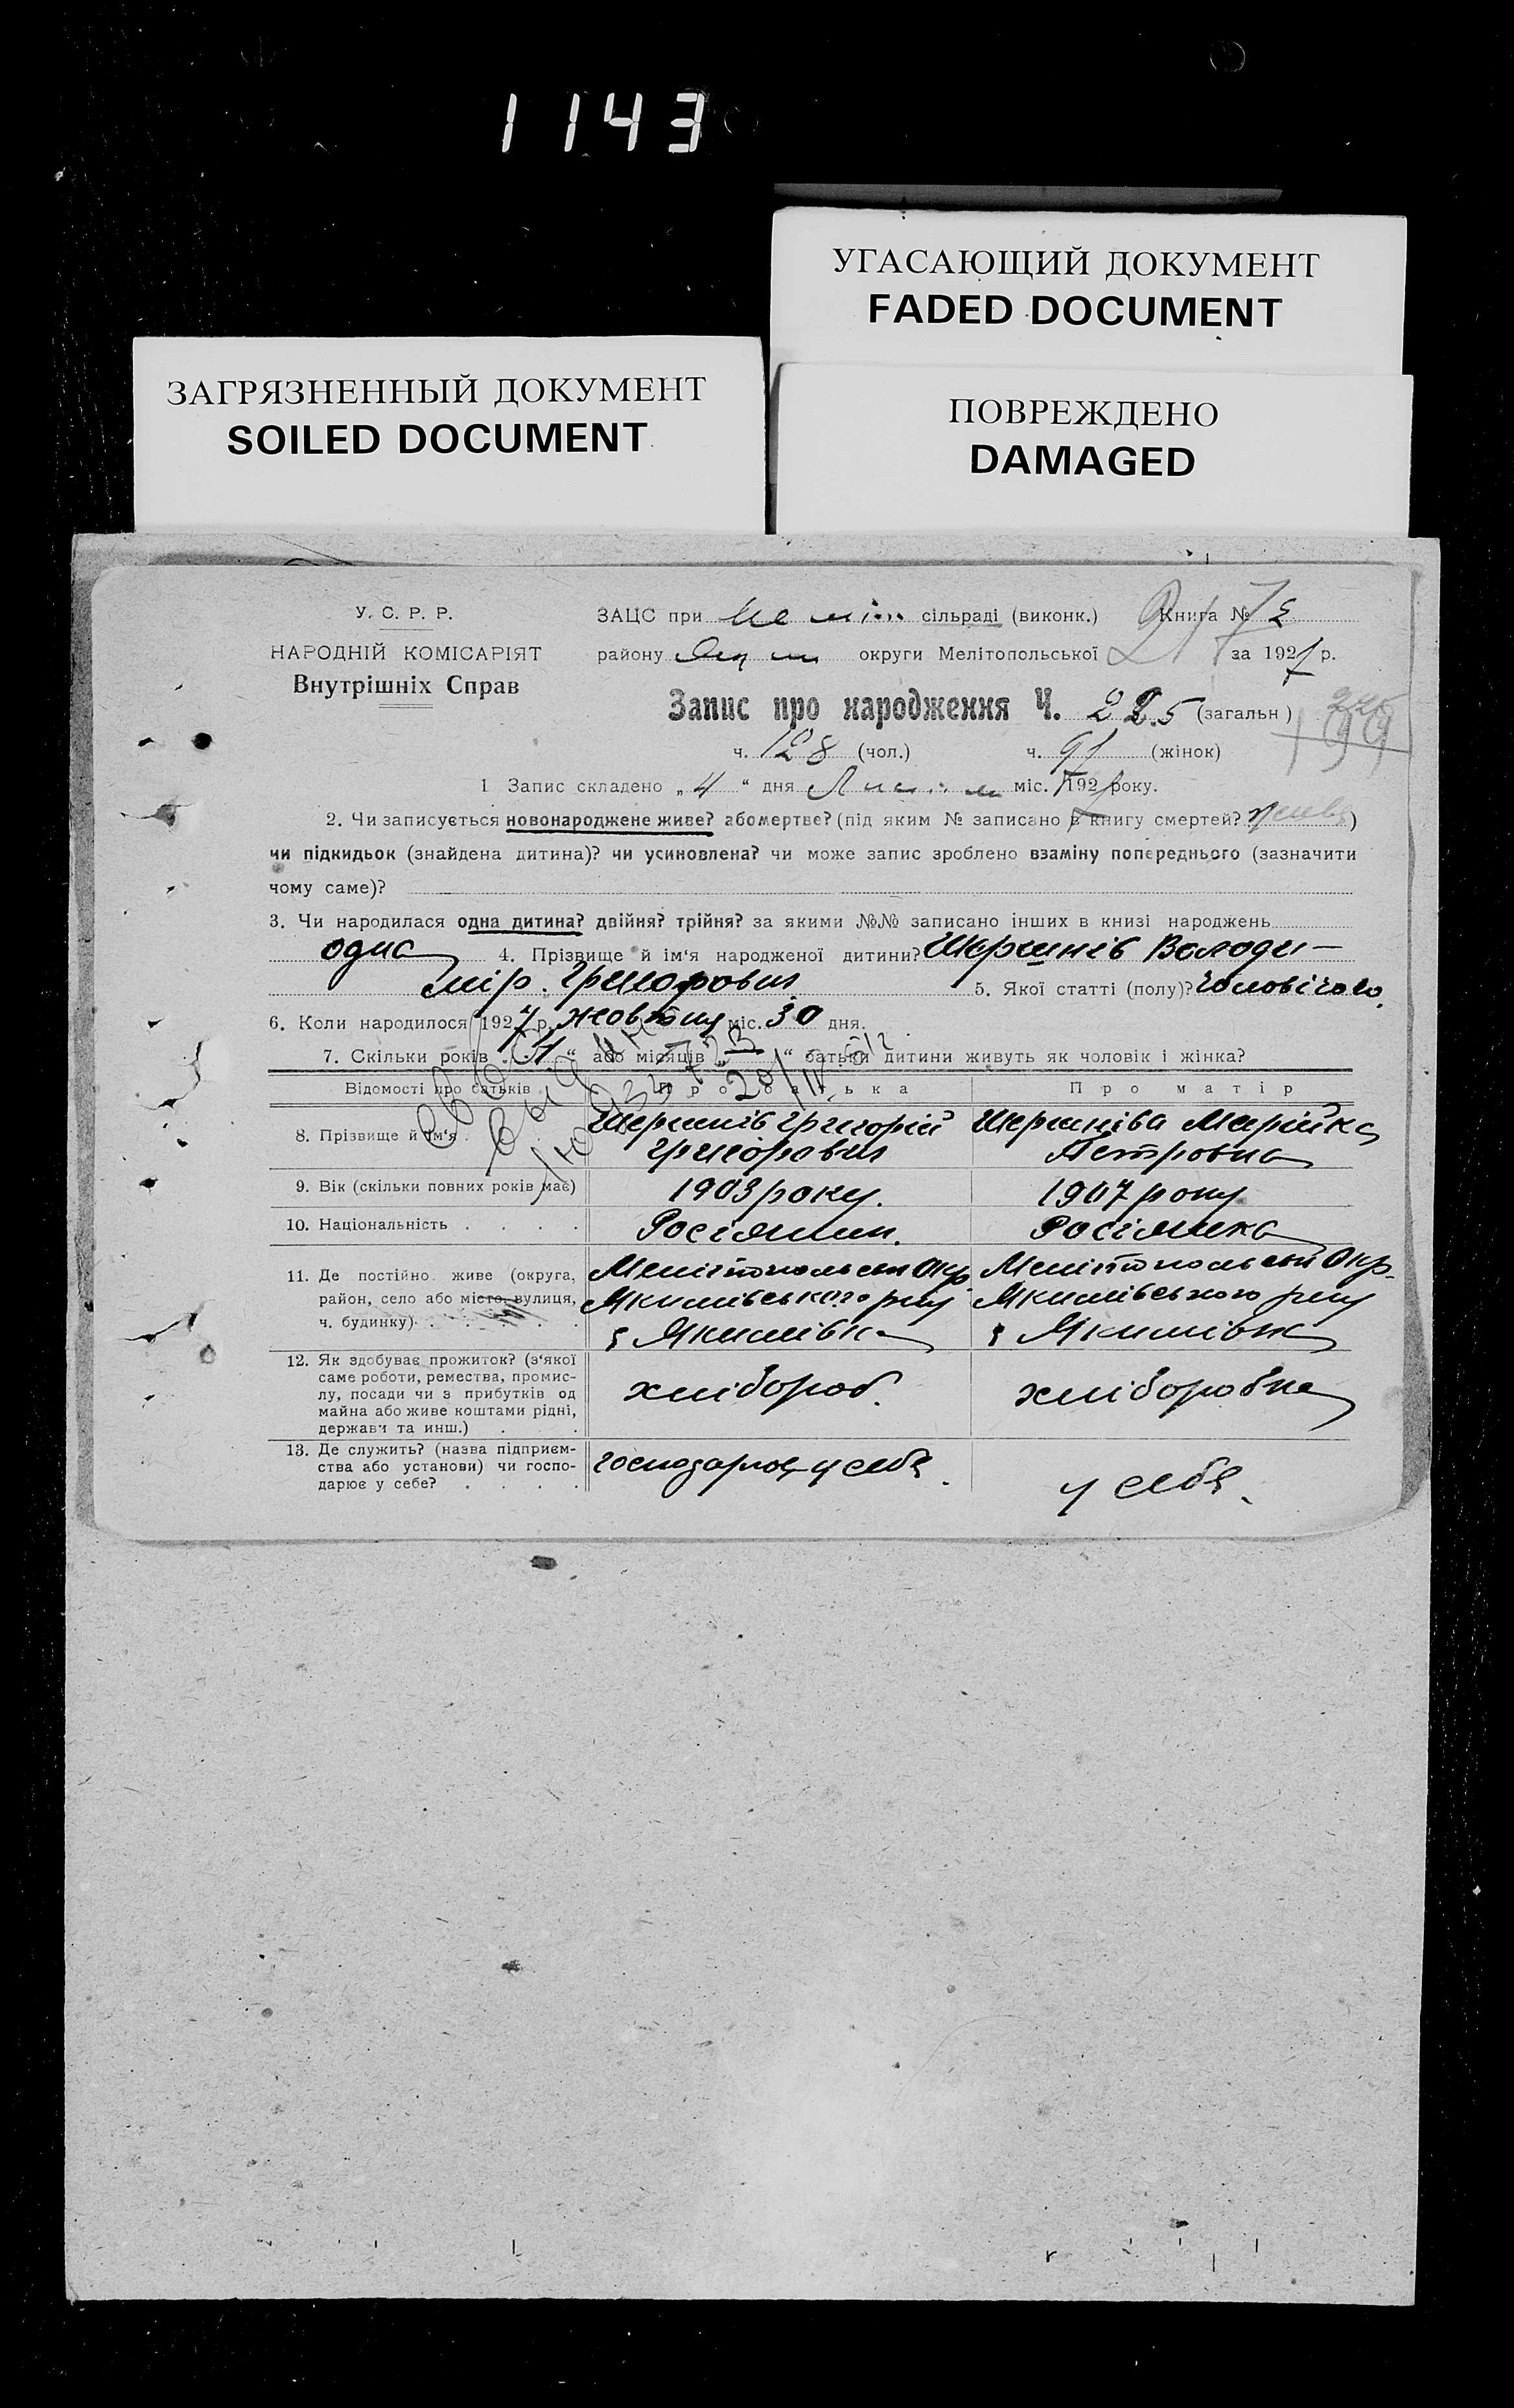 1143
УГАСАЮЩИЙ ДОКУМЕНТ
FADED DOCUMENT
ЗАГРЯЗНЕННЫЙ ДОКУМЕНТ
SOILED DOCUMENT
ПОВРЕЖДЕНО
DAMAGED
У. С. Р. Р.
НАРОДНІЙ КОМІСАРІЯТ
Внутрішніх Справ
ЗАЦС при сільраді (виконк.) Книга №
району округи Мелітопольської за 1927 р.
Запис про народження Ч. 225 (загальн)
ч. 128 (чол.) ч. 97 (жінок)
1 Запис складено „4“ дня міс. 1927 року.
2. Чи записується новонароджене живе? або мертве? (під яким № записано в книгу смертей? живе)
чи підкидьок (знайдена дитина)? чи усиновлена? чи може запис зроблено взаміну попереднього (зазначити
чому саме)?
3. Чи народилася одна дитина? двійня? трійня? за якими №№ записано інших в книзі народжень
одна 4. Прізвище й ім'я народженої дитини? Шершнів Володи-
мір. Григорович 5. Якої статті (полу)? чоловічого.
6. Коли народилося 1927 р. жовтня міс. 30 дня.
7. Скільки років „ “ або місяців „ “ батьки дитини живуть як чоловік і жінка?
Відомості про батьків Про батька Про матір
8. Прізвище й ім'я . Шершнів Григорій Шершніва Марійка
Григорович Петровна
9. Вік (скільки повних років має) 1903 року. 1907 року
10. Національність . . . . Росіянин. Росіянка
11. Де постійно живе (округа, Мелітопольськи Окр. Мелітопольськи Окр.
район, село або місто, вулиця, Якимівського р-ну Якимівського р-ну
ч. будинку) . . . . . с Якимівка с Якимівка
12. Як здобуває прожиток? (з'якої
саме роботи, ремества, промис-
лу, посади чи з прибутків од
майна або живе коштами рідні,
держави та инш.) . . хлібороб. хліборобка
13. Де служить? (назва підприєм-
ства або установи) чи госпо-
дарює у себе? . . . . господарює у себе. у себе.